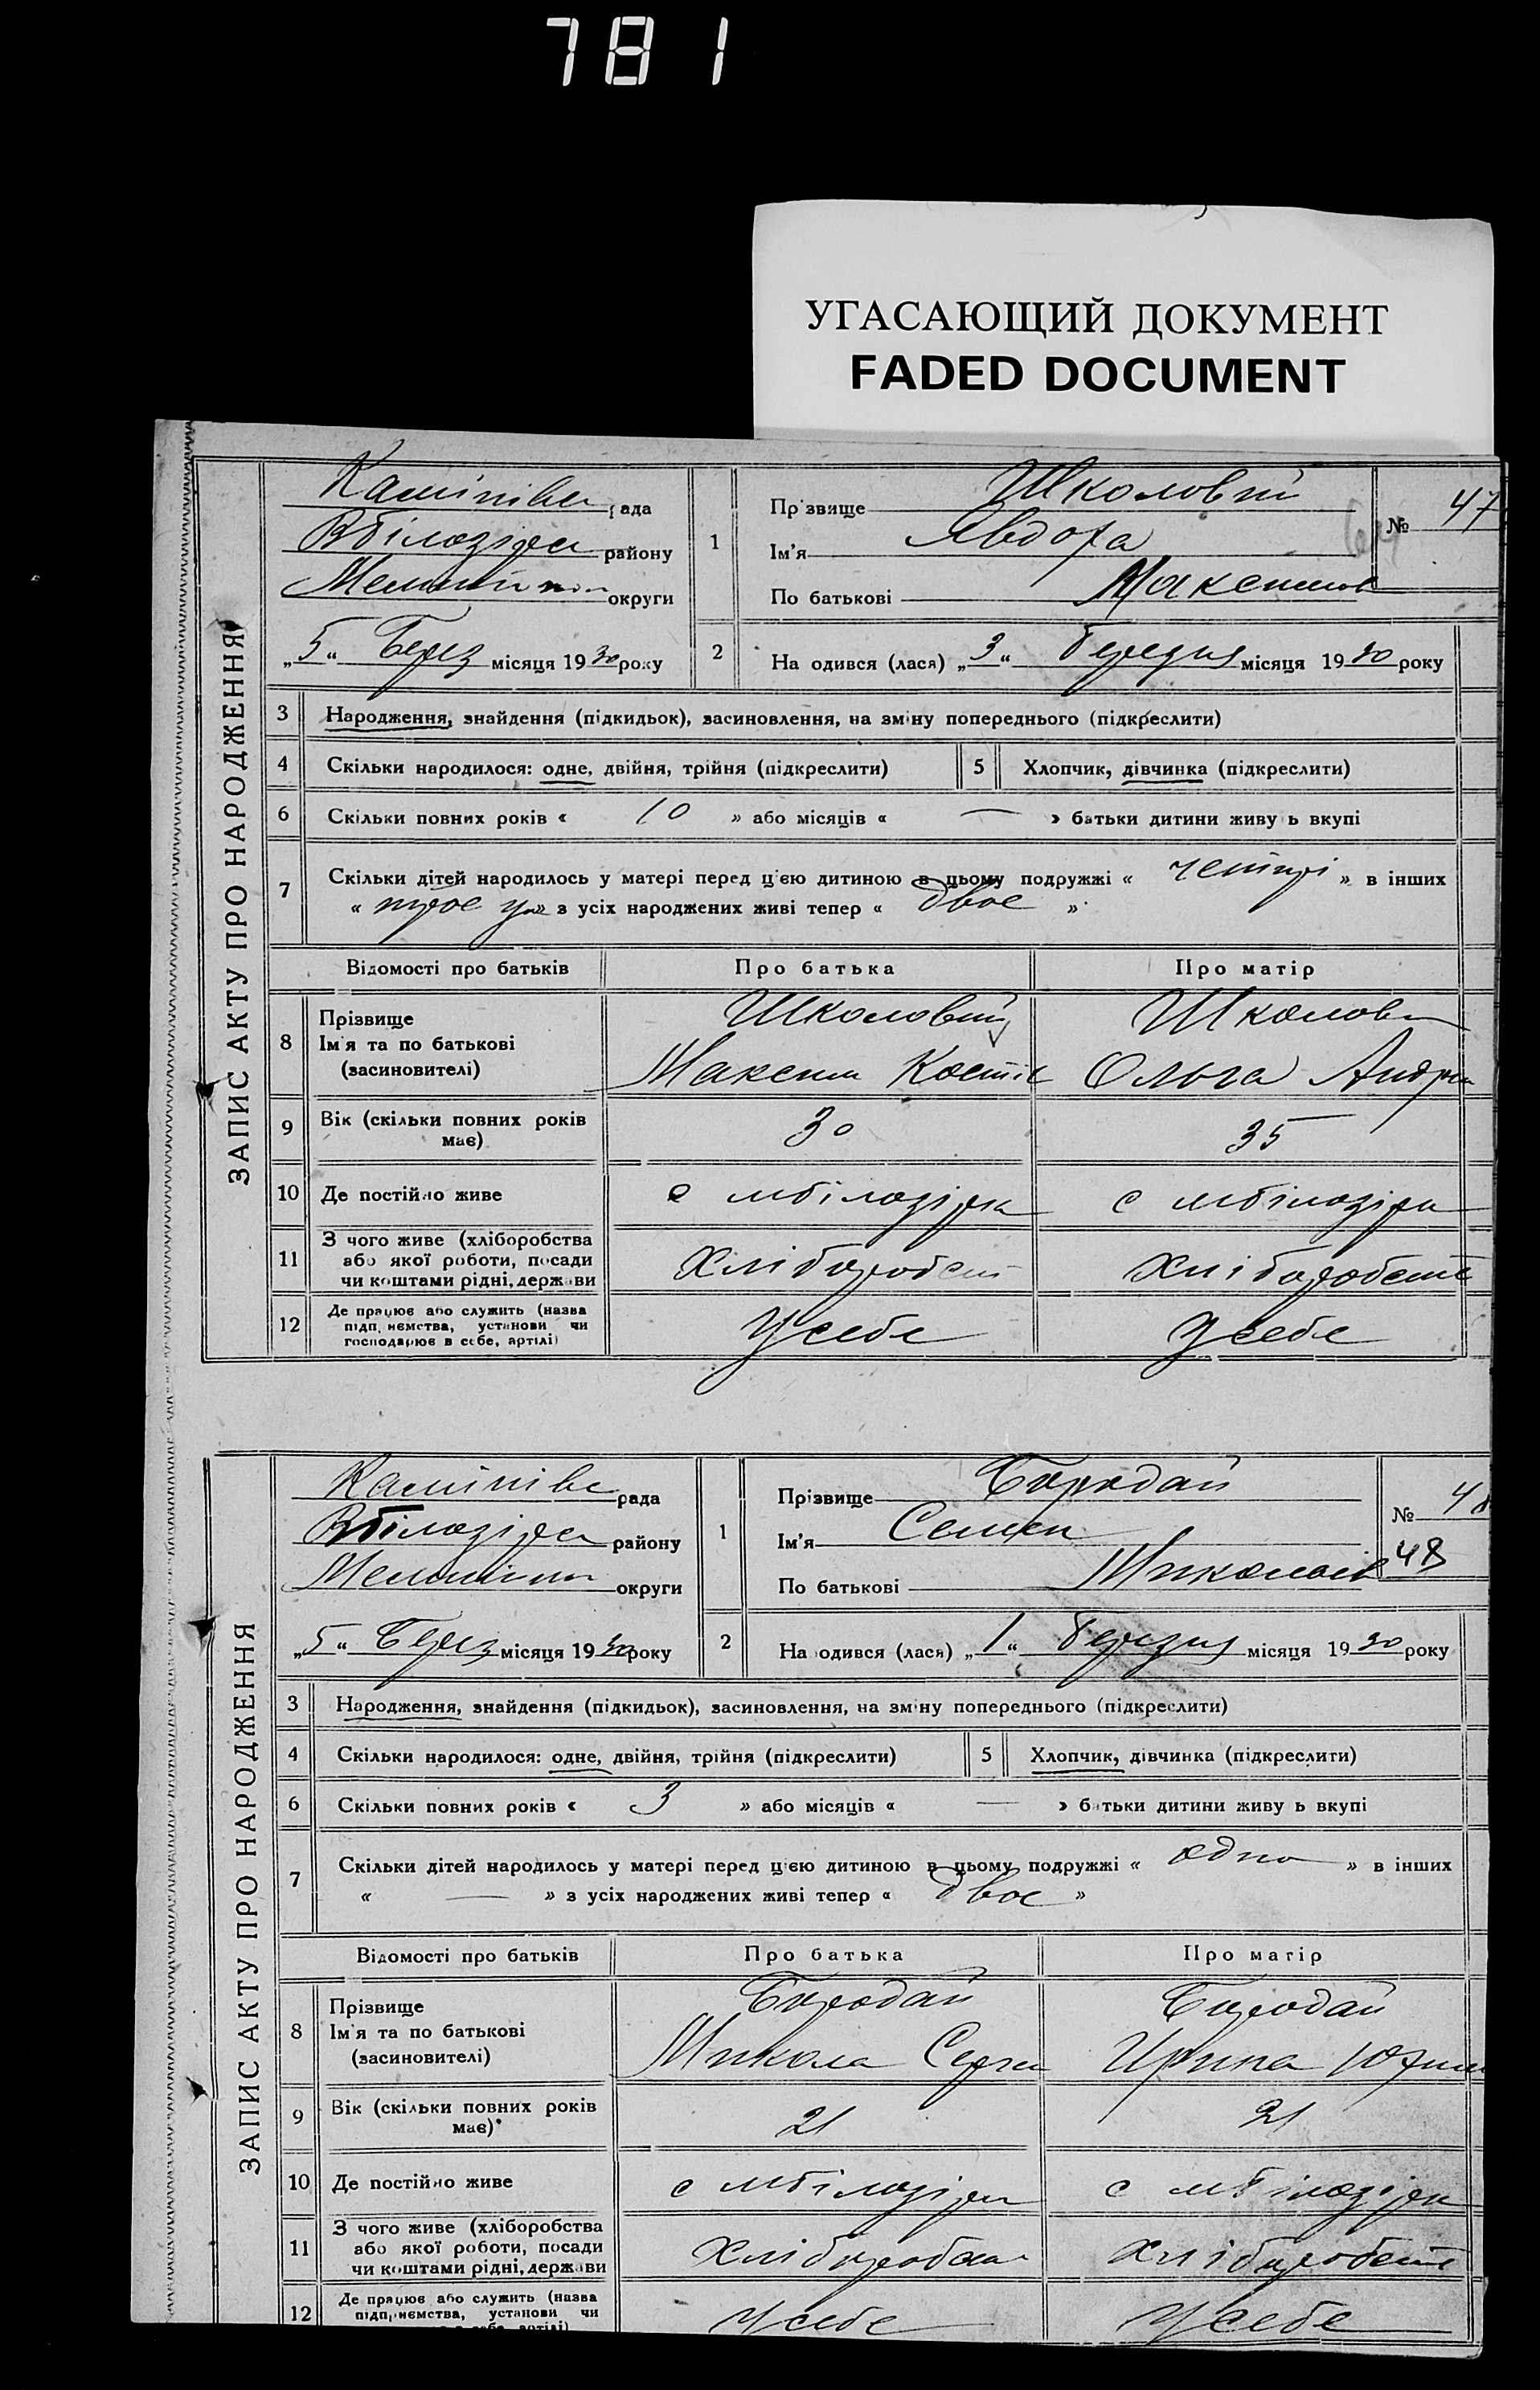 781
УГАСАЮЩИЙ ДОКУМЕНТ
FADED DOCUMENT
ЗАПИС АКТУ ПРО НАРОДЖЕННЯ
рада
Вбілозірка району
округи
„5“ Берез місяця 1930 року
1
Прізвище Школовий
Ім'я Явдоха
По батькові Максимов
№ 47
2
На одився (лася) „3“ березня місяця 1930 року
3 Народження, знайдення (підкидьок), засиновлення, на зміну попереднього (підкреслити)
4 Скільки народилося: одне, двійня, трійня (підкреслити) 5 Хлопчик, дівчинка (підкреслити)
6 Скільки повних років « 10 » або місяців « — » батьки дитини живу ь вкупі
7 Скільки дітей народилось у матері перед цією дитиною в цьому подружжі « четирі » в інших
« троє » з усіх народжених живі тепер « двоє »
Відомості про батьків Про батька Про матір
8 Прізвище Ім'я та по батькові (засиновителі)
Школовий Школов
Максим Костів Ольга Андрі
9 Вік (скільки повних років має) 30 35
10 Де постійно живе с мбілозірка с мбілозірка
11 З чого живе (хліборобства або якої роботи, посади чи коштами рідні, держави
Хліборобст Хліборобств
12 Де працює або служить (назва підприємства, установи чи господарює в себе, артілі)
У себе У себе
ЗАПИС АКТУ ПРО НАРОДЖЕННЯ
рада
Вбілозірка району
округи
„5“ Берез місяця 1930 року
1
Прізвище Бородай
Ім'я Семен
По батькові Миколаів
№ 48
48
2
На одився (лася) „1“ березня місяця 1930 року
3 Народження, знайдення (підкидьок), засиновлення, на зміну попереднього (підкреслити)
4 Скільки народилося: одне, двійня, трійня (підкреслити) 5 Хлопчик, дівчинка (підкреслити)
6 Скільки повних років « 3 » або місяців « — » батьки дитини живу ь вкупі
7 Скільки дітей народилось у матері перед цією дитиною в цьому подружжі « одно » в інших
« — » з усіх народжених живі тепер « двоє »
Відомості про батьків Про батька Про матір
8 Прізвище Ім'я та по батькові (засиновителі)
Бородай Бородай
Микола Сергі Ирина Юхим
9 Вік (скільки повних років має) 21 21
10 Де постійно живе с мбілозірка с мбілозірка
11 З чого живе (хліборобства або якої роботи, посади чи коштами рідні, держави
Хлібороб Хліборобств
12 Де працює або служить (назва підприємства, установи чи
У себе У себе